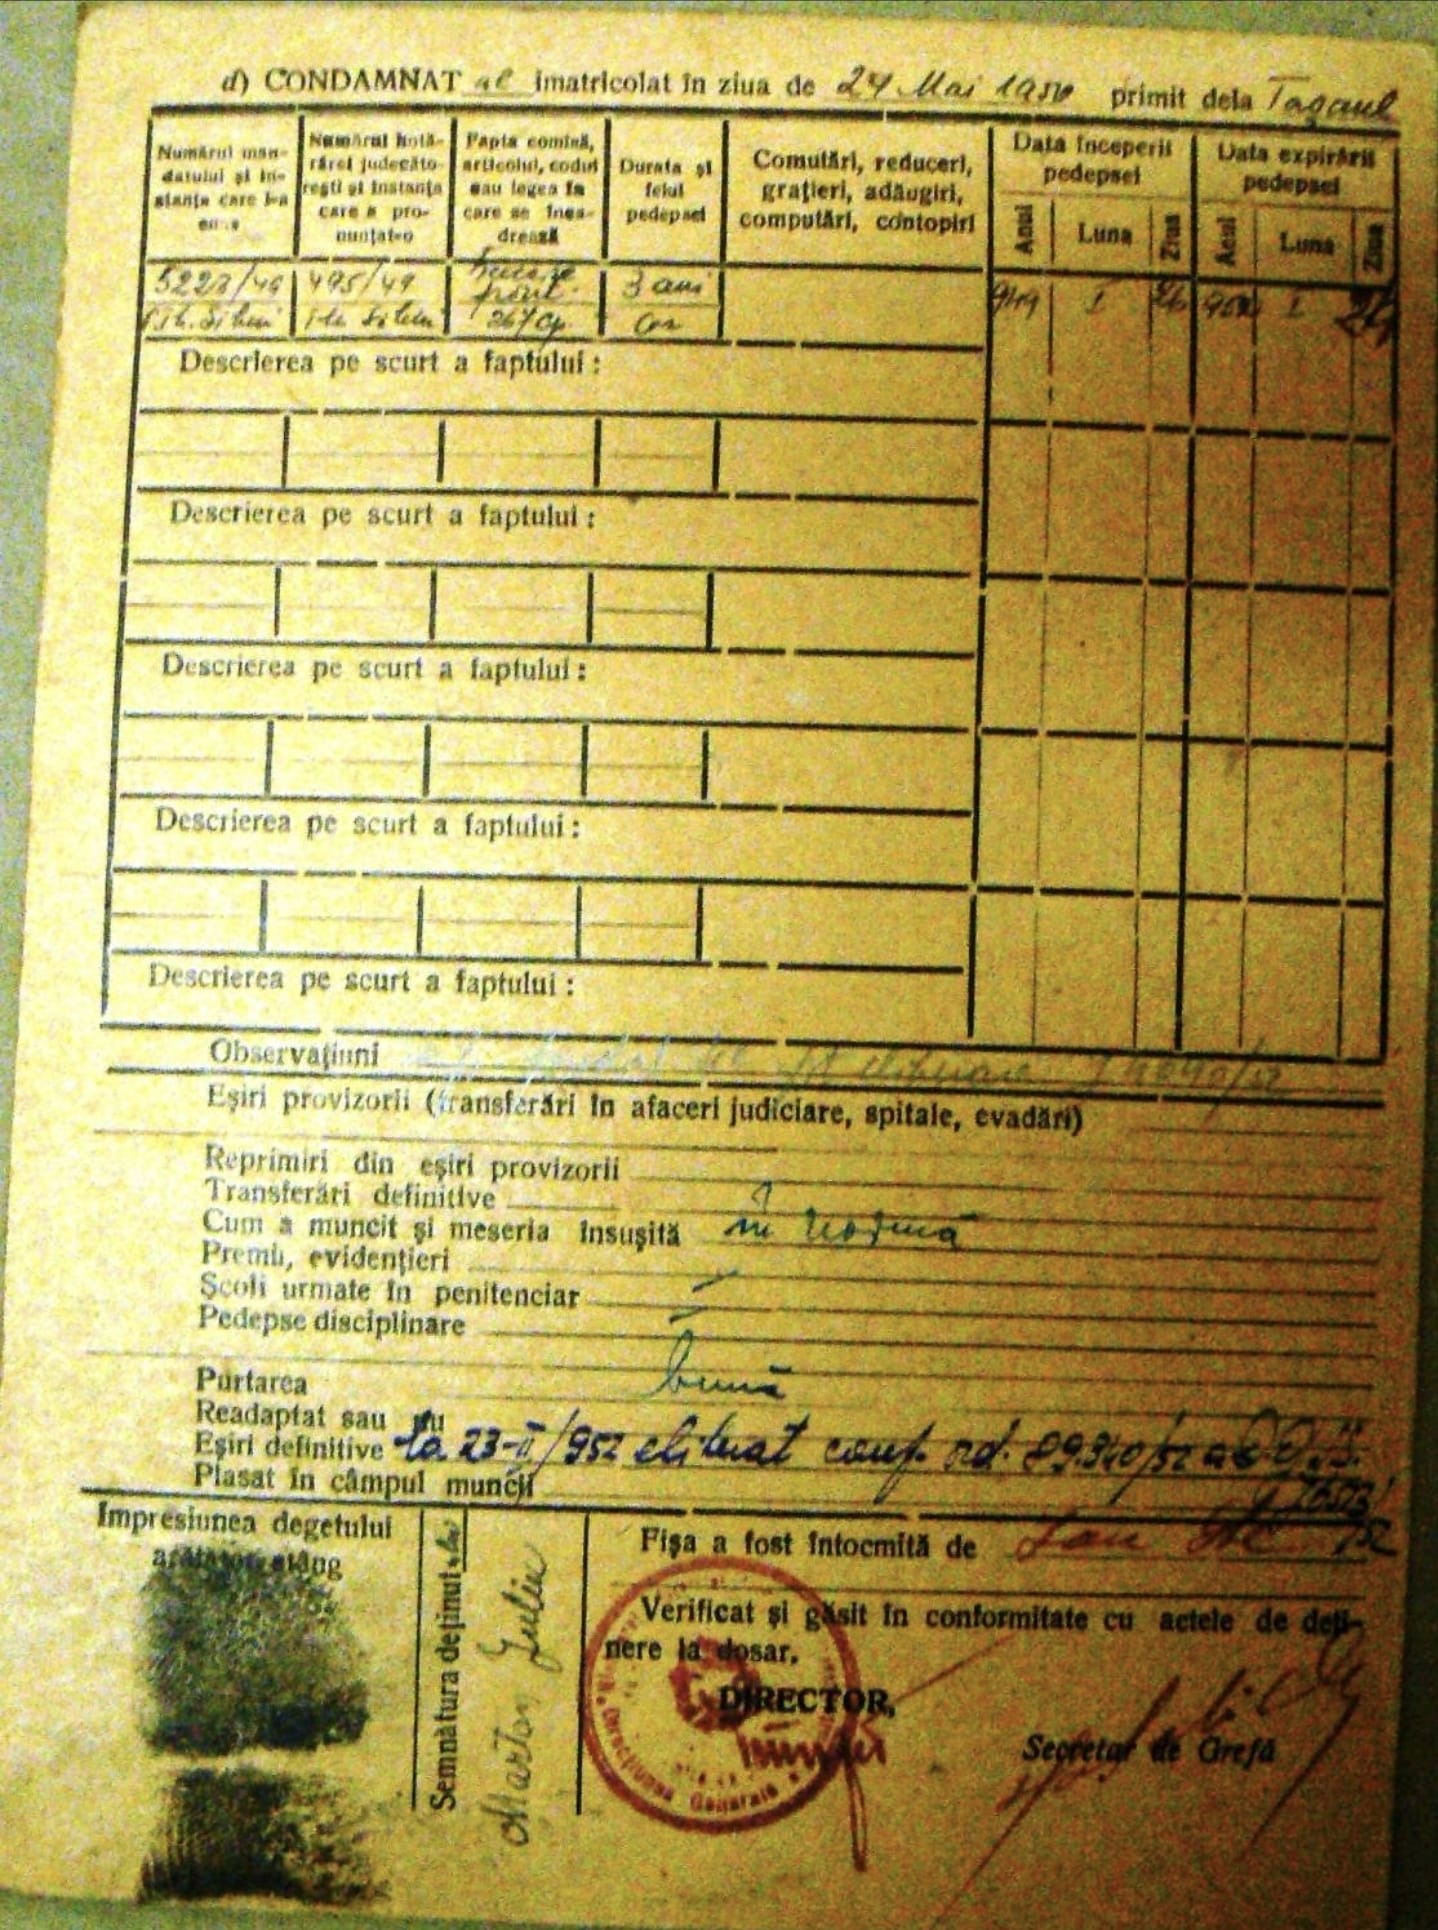 d) CONDAMNAT al imatricolat în ziua de 24 Mai 1950 primit dela
Numărul mandatului și instanța care l-a
Numărul hotărârei judecătorești și instanța care a pronunțat-o
Fapta comisă, articolul, codul sau legea în care se încadrează
Durata și felul pedepsei
Comutări, reduceri, grațieri, adăugiri, computări, contopiri
Data începerii pedepsei
Data expirării pedepsei
Anul Luna Ziua Anul Luna Ziua
5223/49 495/49 3 ani 949 I I
267 cp
Descrierea pe scurt a faptului :
Descrierea pe scurt a faptului :
Descrierea pe scurt a faptului :
Descrierea pe scurt a faptului :
Descrierea pe scurt a faptului :
Observațiuni
Eșiri provizorii (transferări în afaceri judiciare, spitale, evadări)
Reprimiri din eșiri provizorii
Transferări definitive
Cum a muncit și meseria însușită în normă
Premii, evidențieri
Școli urmate în penitenciar —
Pedepse disciplinare —
Purtarea bună
Readaptat sau nu
Eșiri definitive la 23-II/952 eliberat conf. ord. 89.340/52
Plasat în câmpul muncii
Impresiunea degetului
arătător stâng
Semnătura deținut
Marton Juliu
Fișa a fost întocmită de
Verificat și găsit în conformitate cu actele de deți-
nere la dosar.
DIRECTOR,
Secretar de Grefă
Direcțiunea Generală